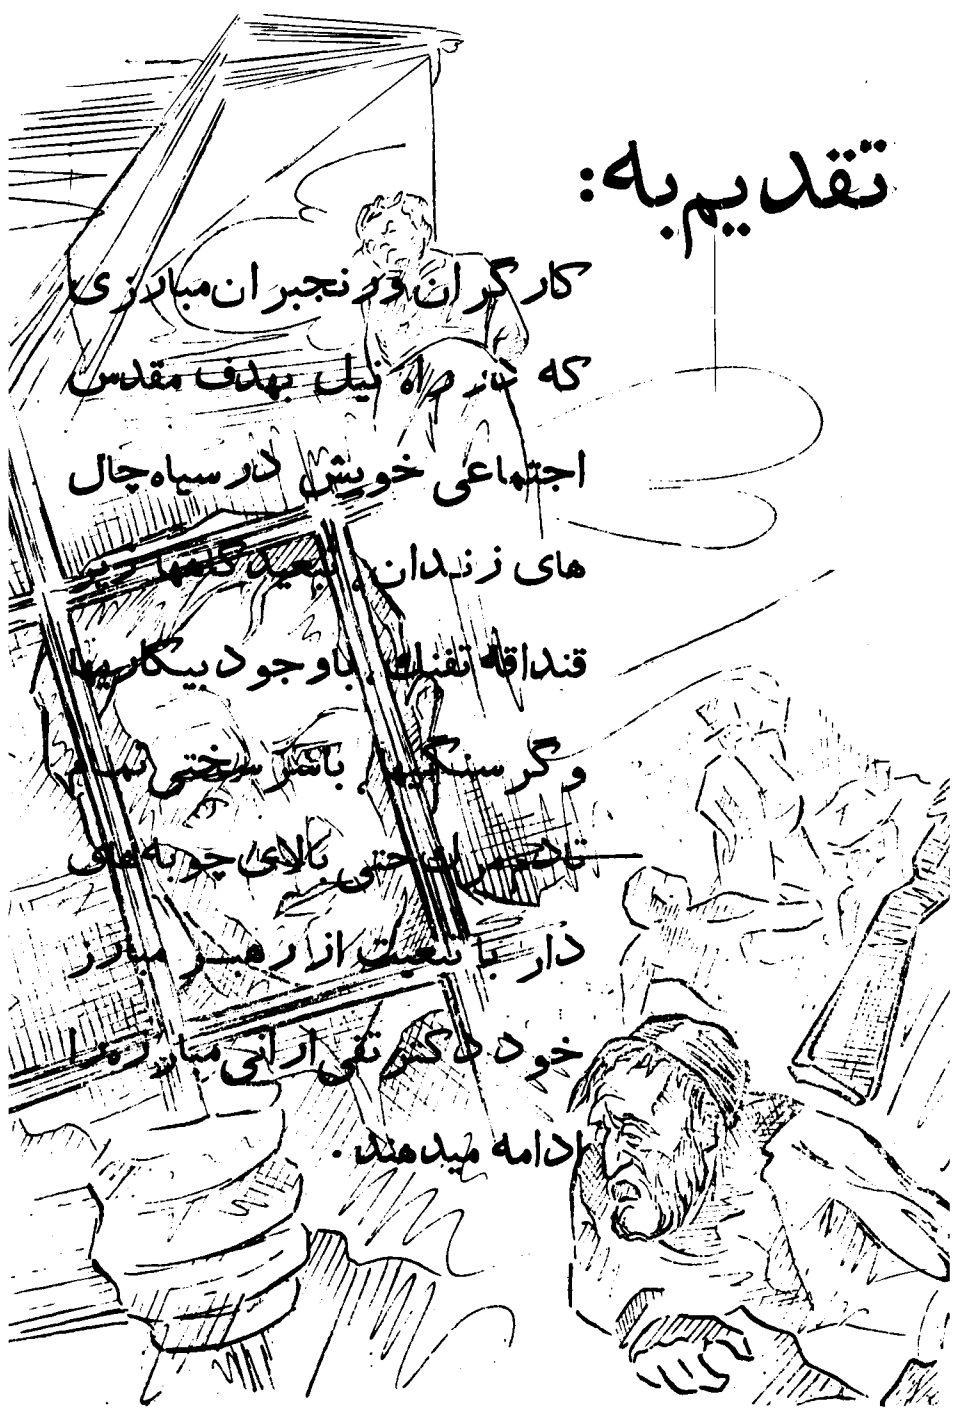 تقدیم به:
کارگران و رنجبران مبارزی
که در راه نیل بهدف مقدس
اجتماعی خویش در سیاه چال
های زندان، تبعیدگاهها زیر
قنداقه تفنك، باوجود بیکاریها
و گرسنگیها، باسرسختی تمام
تادم مرك حتی بالای چوبه های
دار با تبعیت از رهبر مبارز
خود دکتر تقی ارانی مبارزه را
ادامه میدهند.